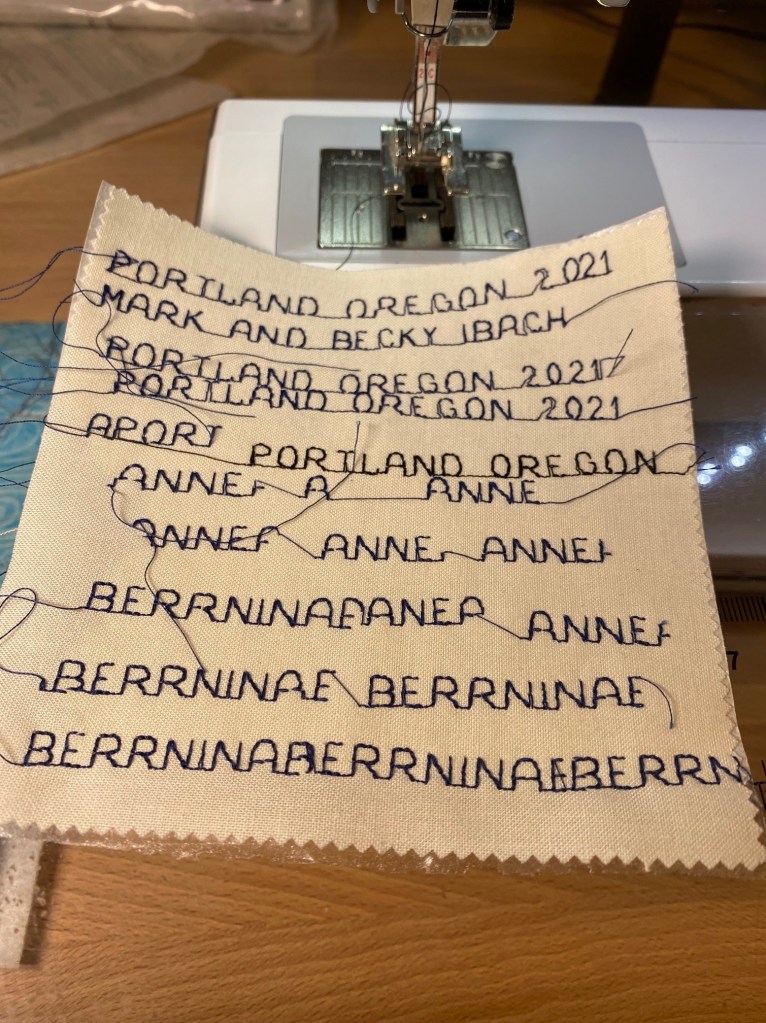 PORTLAND OREGON 2021
MARK AND BECKY IBACH
PORTLAND OREGON 2021
PORTLAND OREGON 2021
APORT
PORTLAND OREGON
ANNEF A ANNE
ANNEF ANNE ANNEF
BERRNINAE ANEA ANNEF
BERRNINAE BERRNINAE
BERRNINAE BERRNINAE BERRN
2C
7